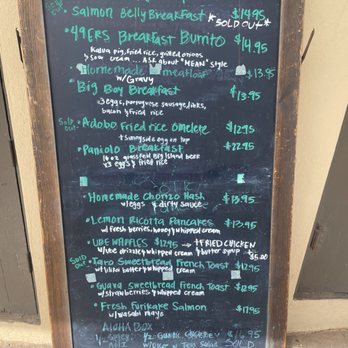 Salmon Belly Breakfast $14.95
*SOLD OUT*
49ERS Breakfast Burrito $14.95
Kalua pig, fried rice, grilled onions
sour cream ... Ask about "MEAN" style
Homemade Meatloaf $13.95
w/Gravy
Big Boy Breakfast $13.95
3 eggs, portuguese sausage, links,
bacon & fried rice
SOLD OUT
Adobo Fried rice Omelete $12.95
+ sunnyside egg on top
Paniolo Breakfast $22.95
16 oz grassfed Big Island beef
x3 eggs & fried rice
Homemade Chorizo Hash $13.95
w/eggs & dirty sauce
Lemon Ricotta Pancakes $13.95
w/Fresh berries, honey & whipped cream
UBE WAFFLES $12.95 → +FRIED CHICKEN
w/ube drizzle, whipped cream & butter syrup $5.00
SOLD OUT
Taro Sweetbread French Toast $12.95
w/ butter & whipped cream
Guava Sweetbread French Toast $12.95
w/strawberries & whipped cream
Fresh Furikake Salmon $17.95
w/wasabi mayo
ALOHA BOX $16.95
Garlic Chicken
SOLD